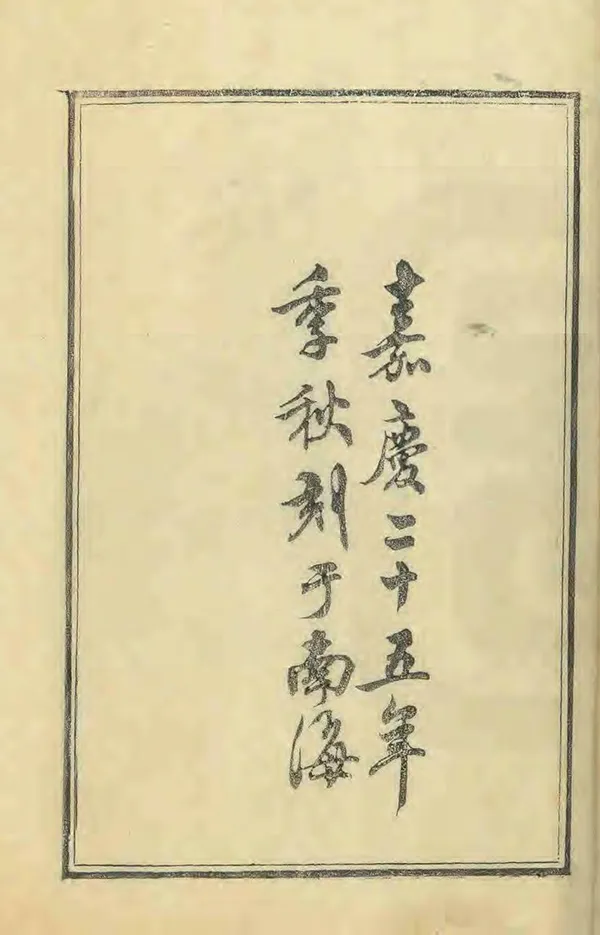 嘉慶二十五年
季秋刻于南海